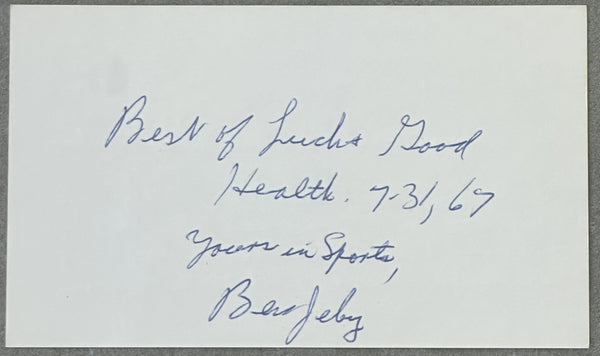 Best of Luck & Good
Health. 7-31, 67
Yours in Sports,
Ben Jeby